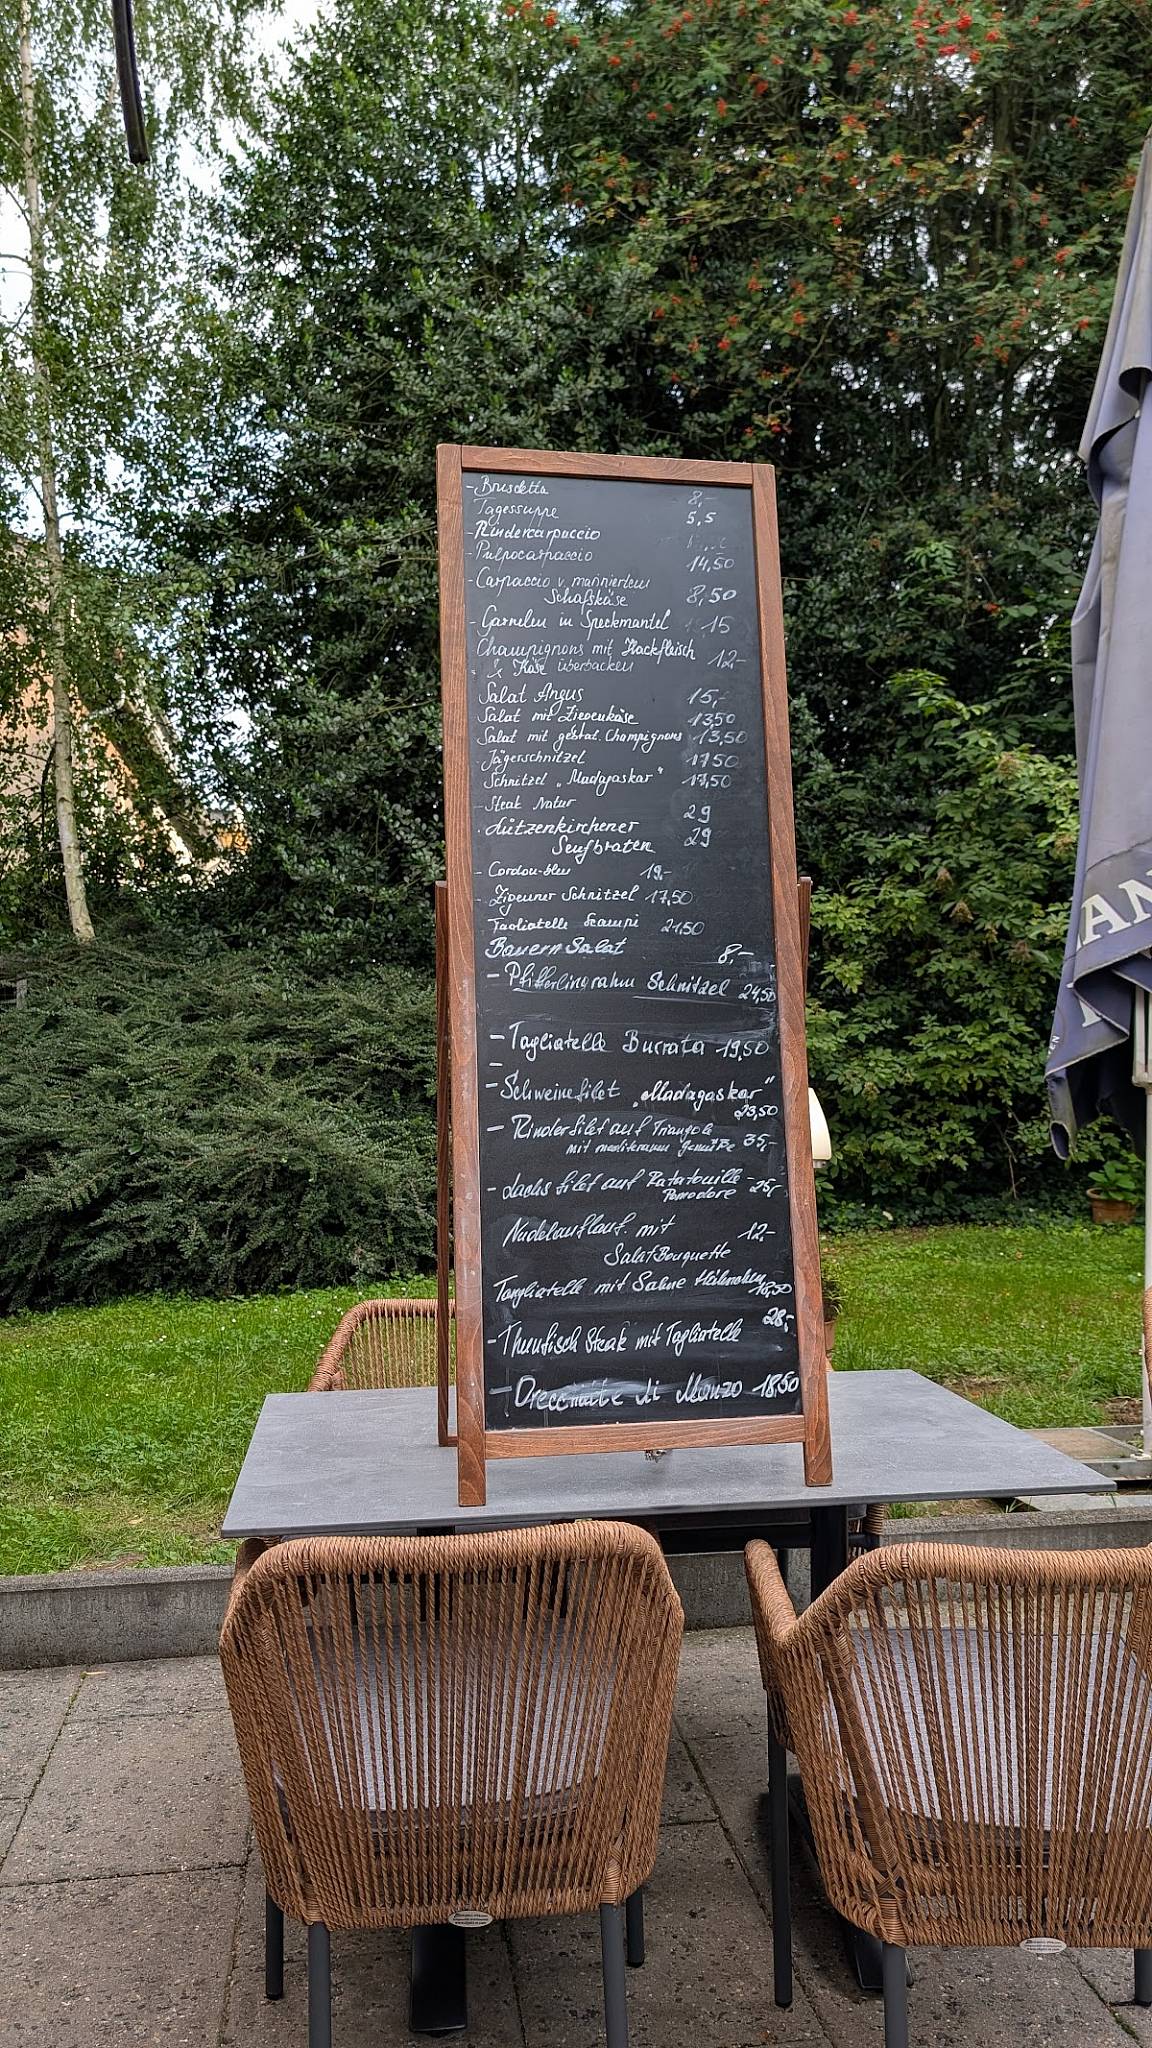 - Brusdetta 8,-
Tagessuppe 5,5
- Rindercarpaccio
- Pulpocarpaccio 14,50
- Carpaccio v. mariniertem
Schafskäse 8,50
- Garnelen in Speckmantel 15
Champignons mit Hackfleisch 12,-
& Käse überbacken
Salat Angus 15,-
Salat mit Ziegenkäse 13,50
Salat mit gebrat. Champignons 13,50
Jägerschnitzel 17,50
Schnitzel „Madagaskar" 17,50
Steak Natur 29
Lützenkirchener
Senfbraten 29
- Cordon-bleu 19,-
Zigeuner Schnitzel 17,50
Tagliatelle Scampi 21,50
Bauern Salat 8,-
- Pfifferlingrahm Schnitzel 24,50
- Tagliatelle Burrata 19,50
-
- Schweinefilet „Madagaskar"
23,50
- Rinderfilet auf Triangole
mit mediteranm 35,-
- Lachs filet auf Ratatouille - 25,-
Pomodore
Nudelauflauf mit 12,-
Salat Bouquette
Tangliatelle mit Sahne Hähnchen
18,50
28,-
- Thunfisch Steak mit Tagliatelle
- di Manzo 18,50
AN